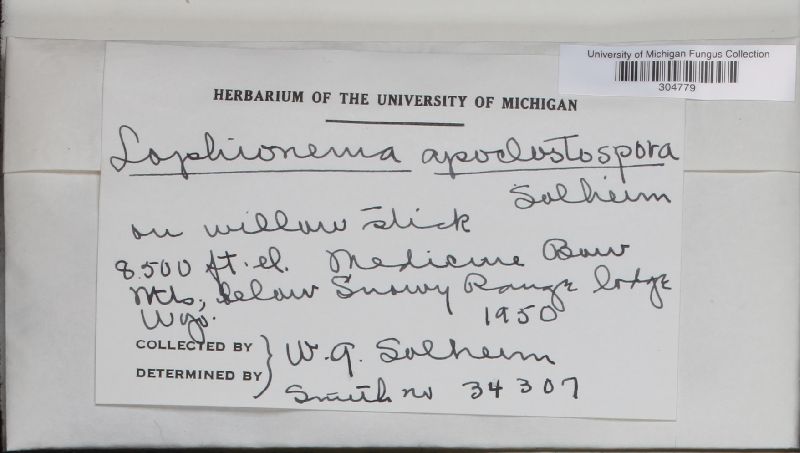 University of Michigan Fungus Collection
304779
HERBARIUM OF THE UNIVERSITY OF MICHIGAN
Lophionema apoclastospora
Solheim
on willow stick
8.500 ft. el. Medicine Bow
Mts, below Snowy Range lodge
Wyo. 1950
COLLECTED BY } W. G. Solheim
DETERMINED BY Smith no 34307